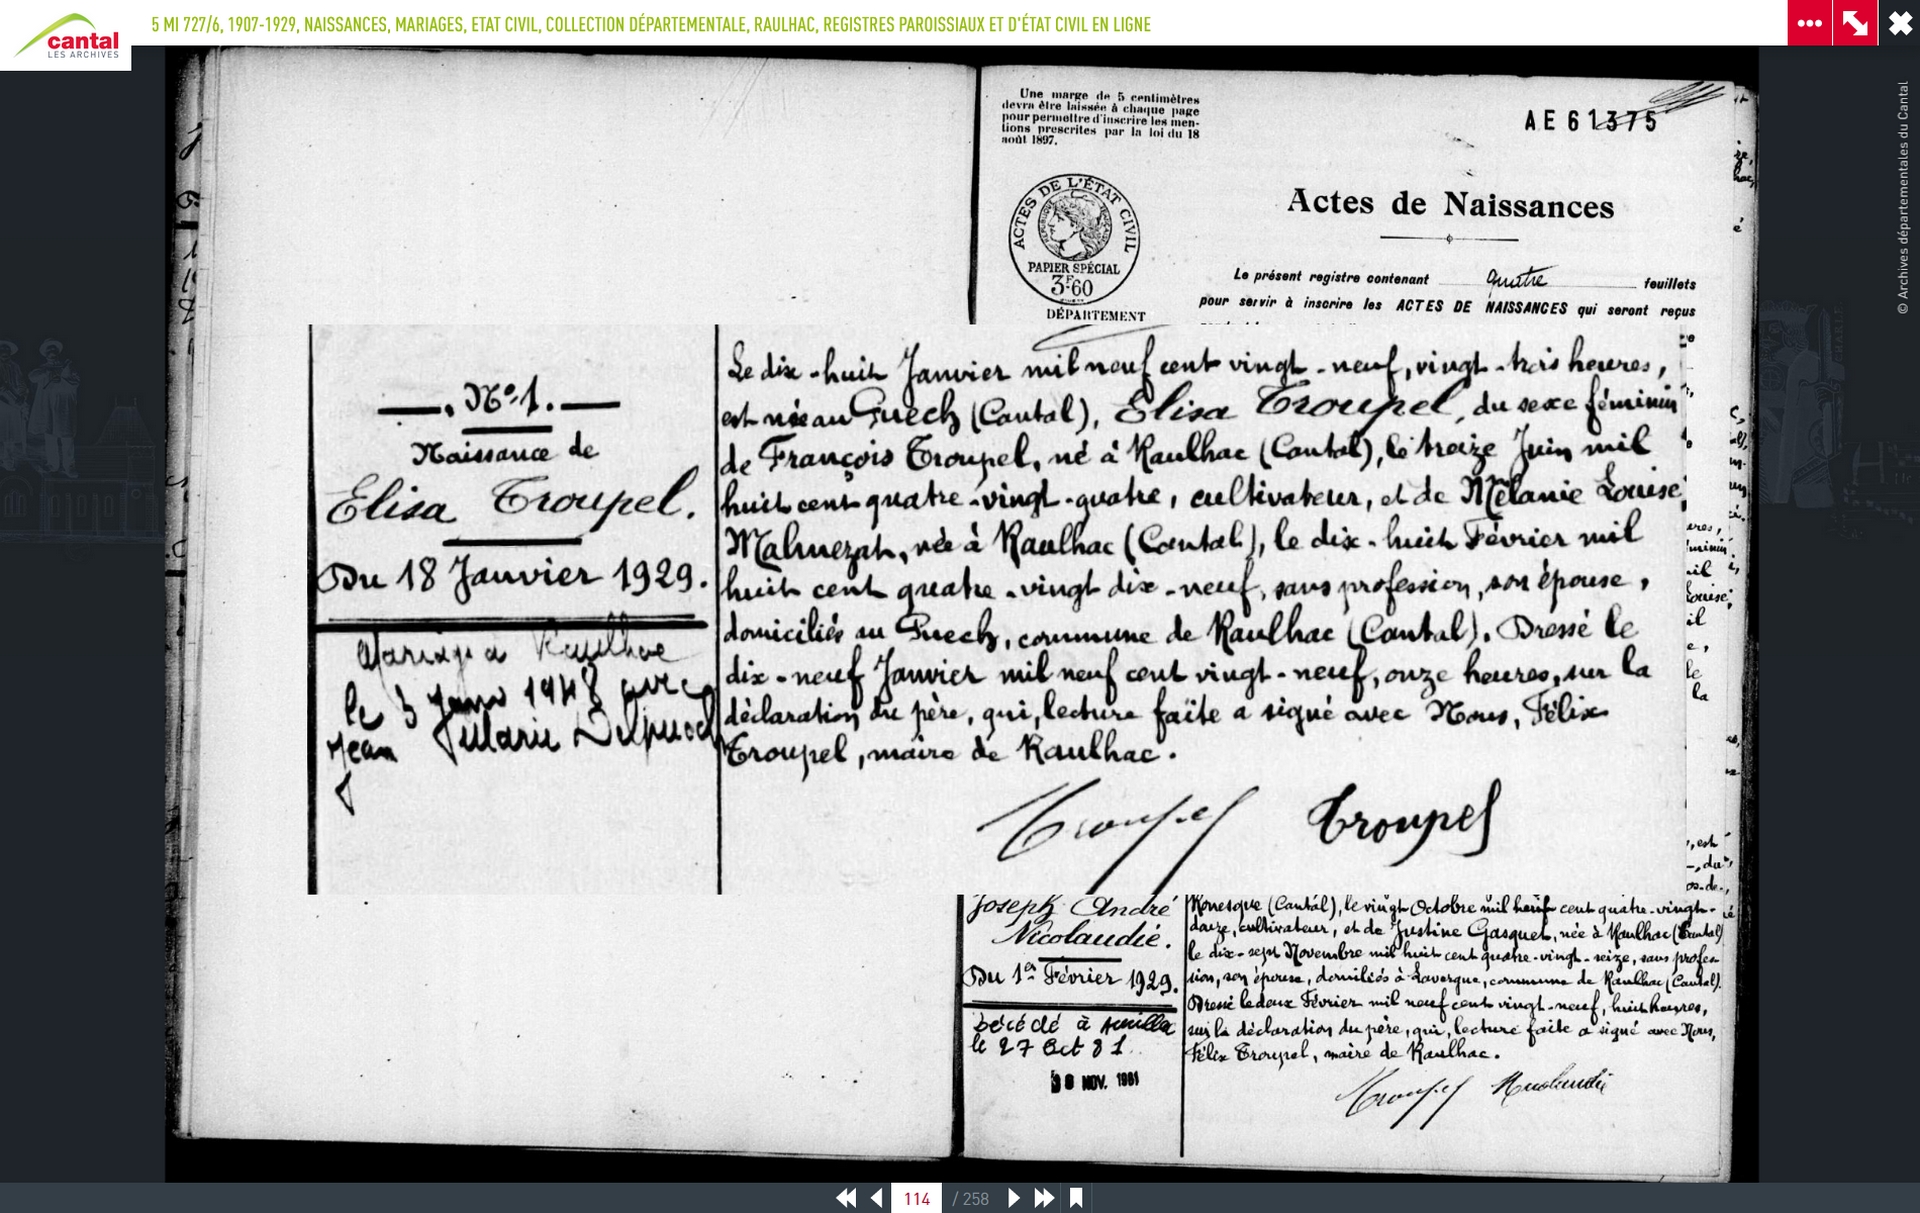 cantal
LES ARCHIVES
5 MI 727/6, 1907-1929, NAISSANCES, MARIAGES, ETAT CIVIL, COLLECTION DÉPARTEMENTALE, RAULHAC, REGISTRES PAROISSIAUX ET D'ÉTAT CIVIL EN LIGNE
© Archives départementales du Cantal
Une marge de 5 centimètres
devra être laissée à chaque page
pour permettre d'inscrire les men-
tions prescrites par la loi du 18
août 1897.
AE 61375
ACTES DE L'ÉTAT CIVIL
PAPIER SPÉCIAL
3F60
DÉPARTEMENT
Actes de Naissances
Le présent registre contenant quatre feuillets
pour servir à inscrire les ACTES DE NAISSANCES qui seront reçus
N° 1.
Naissance de
Elisa Troupel.
Du 18 Janvier 1929.
Mariage à Raulhac
le 3 1948 avec
Jean
Le dix-huit Janvier mil neuf cent vingt-neuf, vingt-trois heures,
est née au Puech (Cantal), Elisa Troupel, du sexe féminin
de François Troupel, né à Raulhac (Cantal), le treize Juin mil
huit cent quatre-vingt-quatre, cultivateur, et de Mélanie Louise
Malmezat, née à Raulhac (Cantal), le dix-huit Février mil
huit cent quatre-vingt dix-neuf, sans profession, son épouse,
domiciliés au Puech, commune de Raulhac (Cantal). Dressé le
dix-neuf Janvier mil neuf cent vingt-neuf, onze heures, sur la
déclaration du père, qui, lecture faite a signé avec Nous, Félix
Troupel, maire de Raulhac.
Troupel Troupel
Joseph André
Nicolaudie.
Du 1er Février 1929.
Décédé à
le 27 Oct 81
NOV. 1981
(Cantal), le vingt Octobre mil huit cent quatre-vingt-
douze, cultivateur, et de Justine Gasquet, née à Raulhac (Cantal)
le dix-sept Novembre mil huit cent quatre-vingt-seize, sans profes-
sion, son épouse, domiciliés à Lavergne, commune de Raulhac (Cantal).
Dressé le deux Février mil neuf cent vingt-neuf, huit heures,
sur la déclaration du père, qui, lecture faite a signé avec Nous,
Félix Troupel, maire de Raulhac.
Troupel Nicolaudie
114 / 258